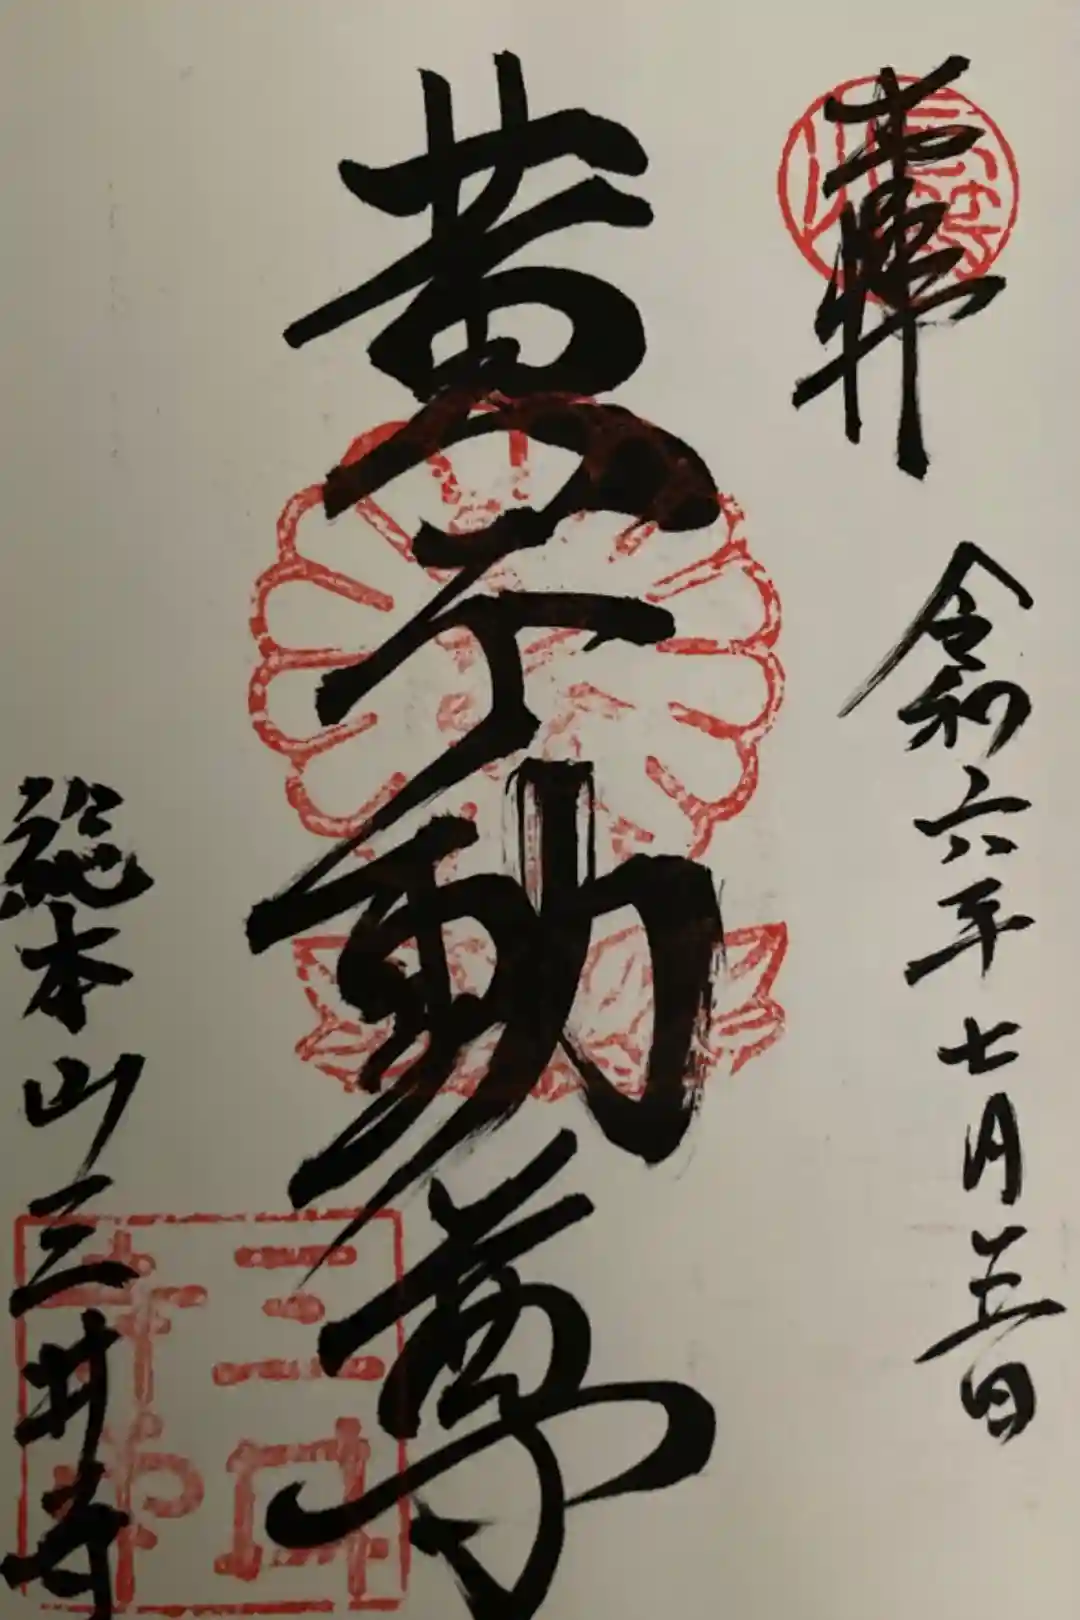 奉拝
令和六年七月
日
黄不動尊
総本山三井寺
三井寺印